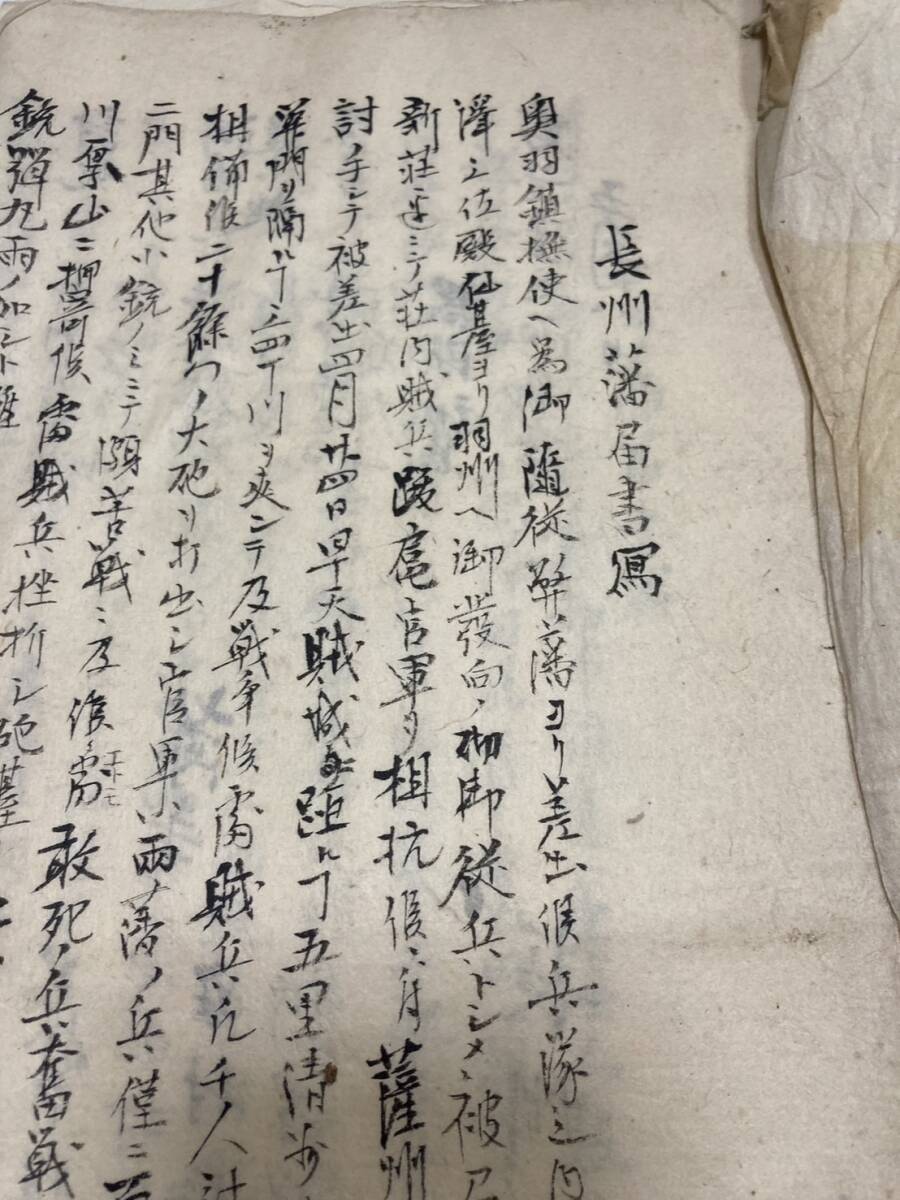 長州藩届書写
奥羽鎮撫使ヘ為御随従弊藩ヨリ差出候兵隊之内
澤三位殿仙䑓ヨリ羽州ヘ御發向ノ砌御従兵トシメ被
新莊ニテ荘内賊兵跋扈官軍ヲ相抗候ニ付薩州
討ノ手シテ被差出四月廿四日早天賊城ヲ距ル丁五里清
ヲ隔ル丁三四丁川ヲ夾ンテ及戦争候處賊兵凡千人計
相備候二十餘ノ大砲ヲ打出シ官軍ハ兩藩ノ兵僅ニ
二門其他小銃ノミニテ頗苦戦ニ及候得共敢死ノ兵ハ奮戦
川原山ニ候處賊兵挫折シ砲䑓
銃弾丸雨ノ如シト雖